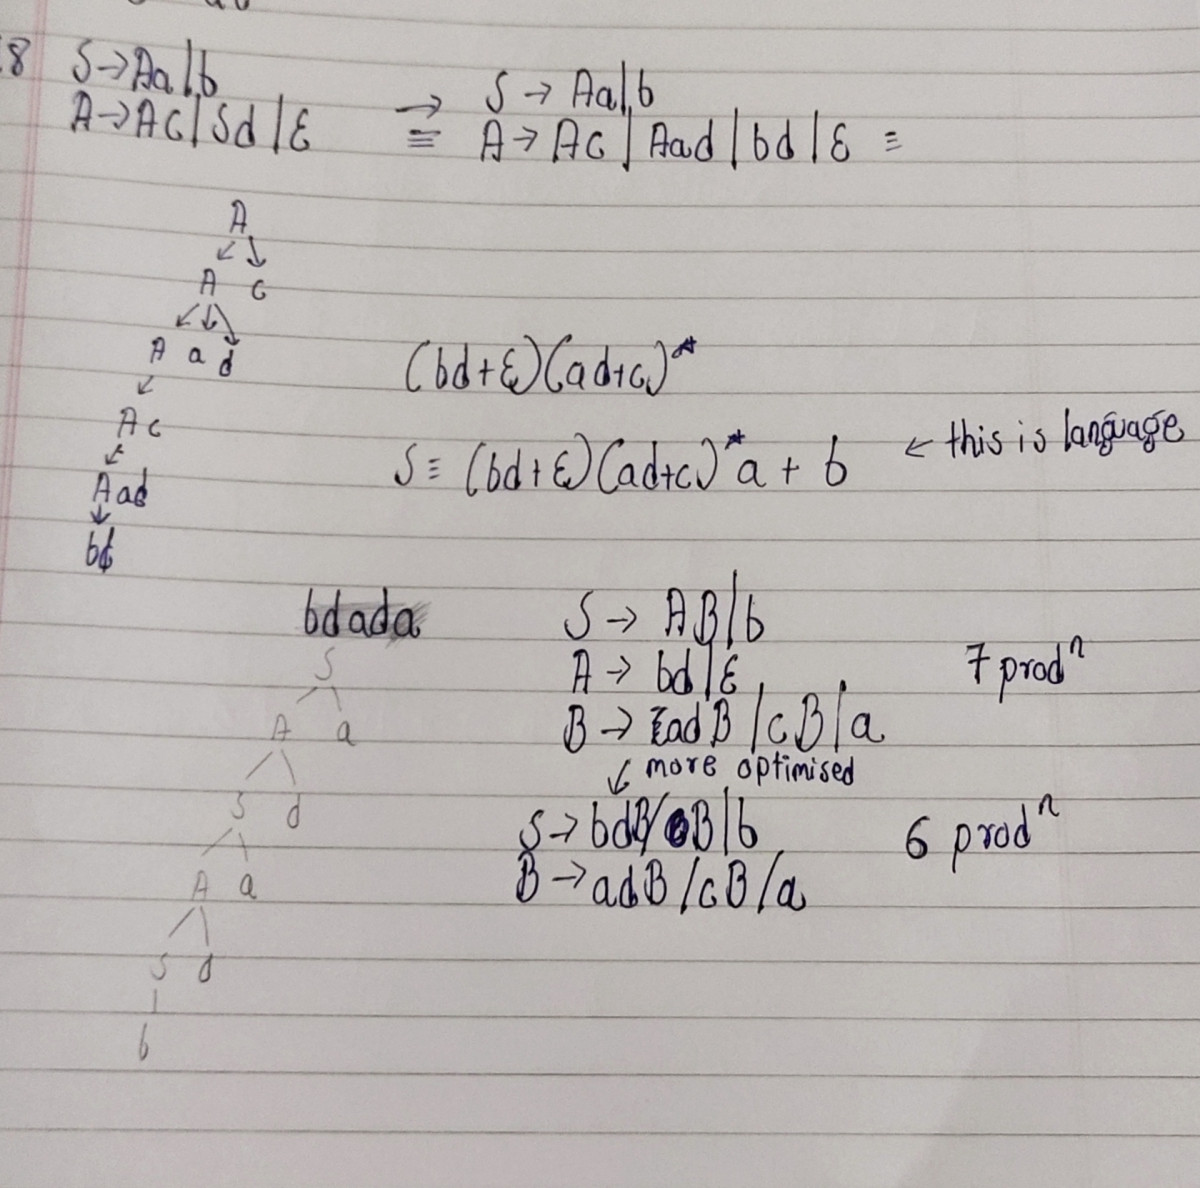 8 S→Aa|b
A→Ac|Sd|ε
→
≡
S → Aa|b
A → Ac | Aad | bd | ε ≡
A
A c
A a d
Ac
Aad
bd
(bd+ε)(ad+c)*
S ≡ (bd+ε)(ad+c)*a + b ← this is language
bdada
S
A a
S d
A a
S d
b
S → AB|b
A → bd|ε
7 prodⁿ
B → adB |cB|a
↓ more optimised
S → bdB/B|b
6 prodⁿ
B → adB /cB/a